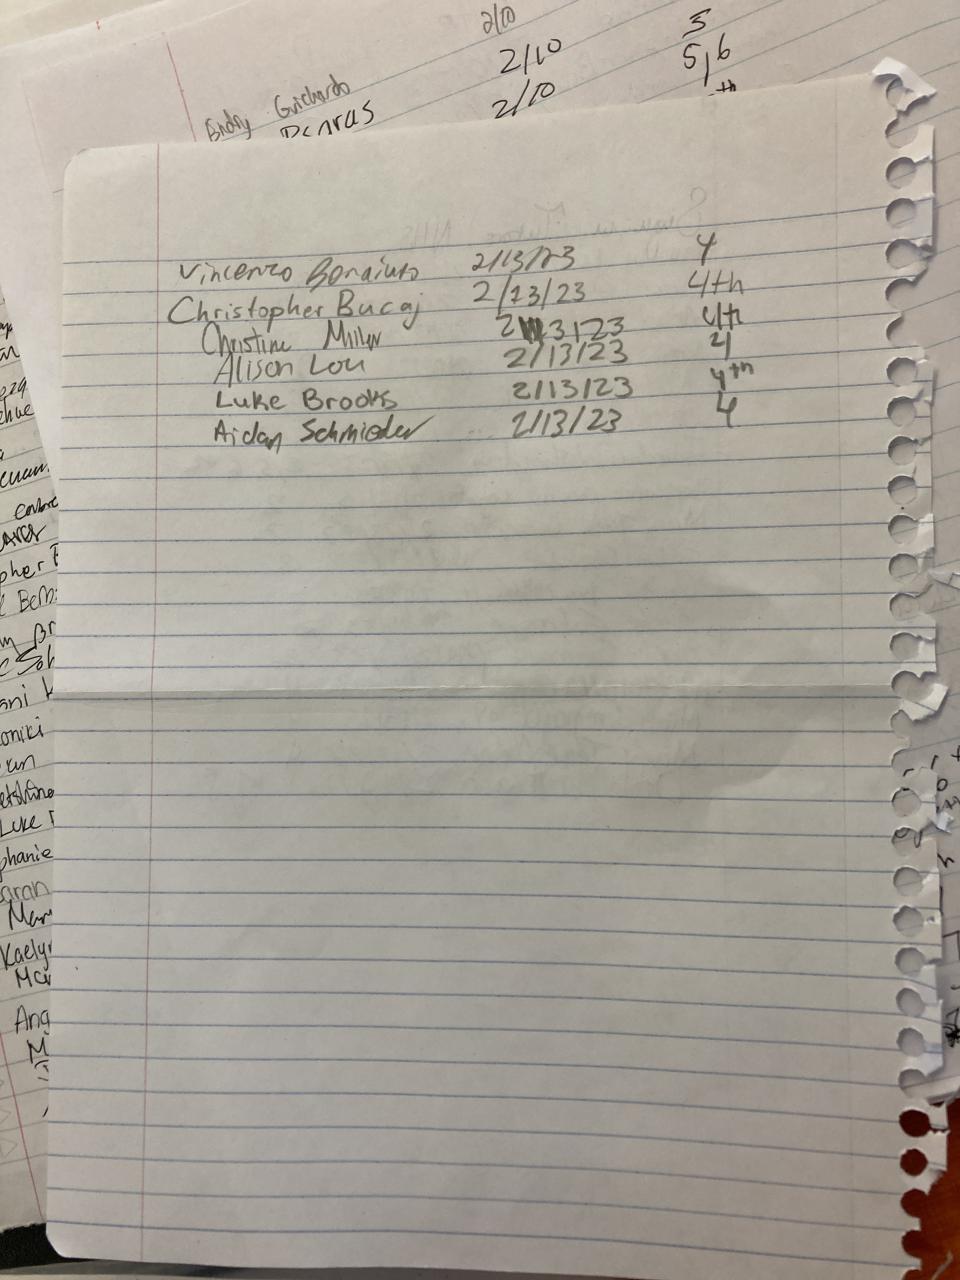 2/10
2/10
Endry Guichardo 2/10
5
5,6
th
Vincenzo Bonaiuto 2/13/23 4
Christopher Bucaj 2/13/23 4th
Christine Miller 2/13/23 4th
Alison Lou 2/13/23 4
Luke Brooks 2/13/23 4th
Aidan Schmieder 2/13/23 4
pher
Br
Sol
ani
oniki
Luke
phanie
aran
Mar
Kaelyn
Ang
M